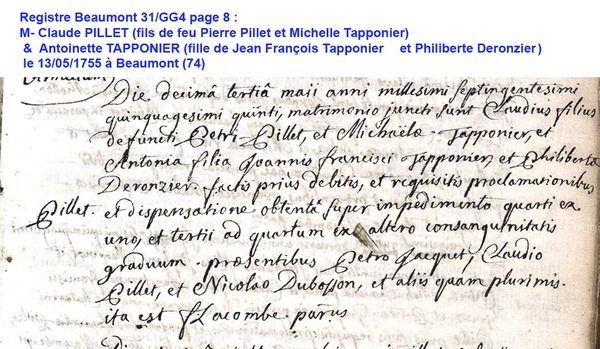 Registre Beaumont 31/GG4 page 8 :
M- Claude PILLET (fils de feu Pierre Pillet et Michelle Tapponier)
& Antoinette TAPPONIER (fille de Jean François Tapponier et Philiberte Deronzier)
le 13/05/1755 à Beaumont (74)
Die decimâ tertiâ maii anni millesimi septingentesimi
quinquagesimi quinti, matrimonio juncti sunt Claudius filius
defuncti Petri Pillet, et Michaelæ Tapponier, et
Antonia filia Joannis francisci Tapponier, et Philibertæ
Deronzier. factis prius debitis, et requisitis proclamationibus
Pillet. et dispensatione obtentâ super impedimento quarti ex
uno, et tertii ad quartum ex altero consanguinitatis
graduum. præsentibus Petro Jacquet, Claudio
Pillet, et Nicolao Dubosson, et aliis quam plurimis.
ita est f Lacombe. parūs